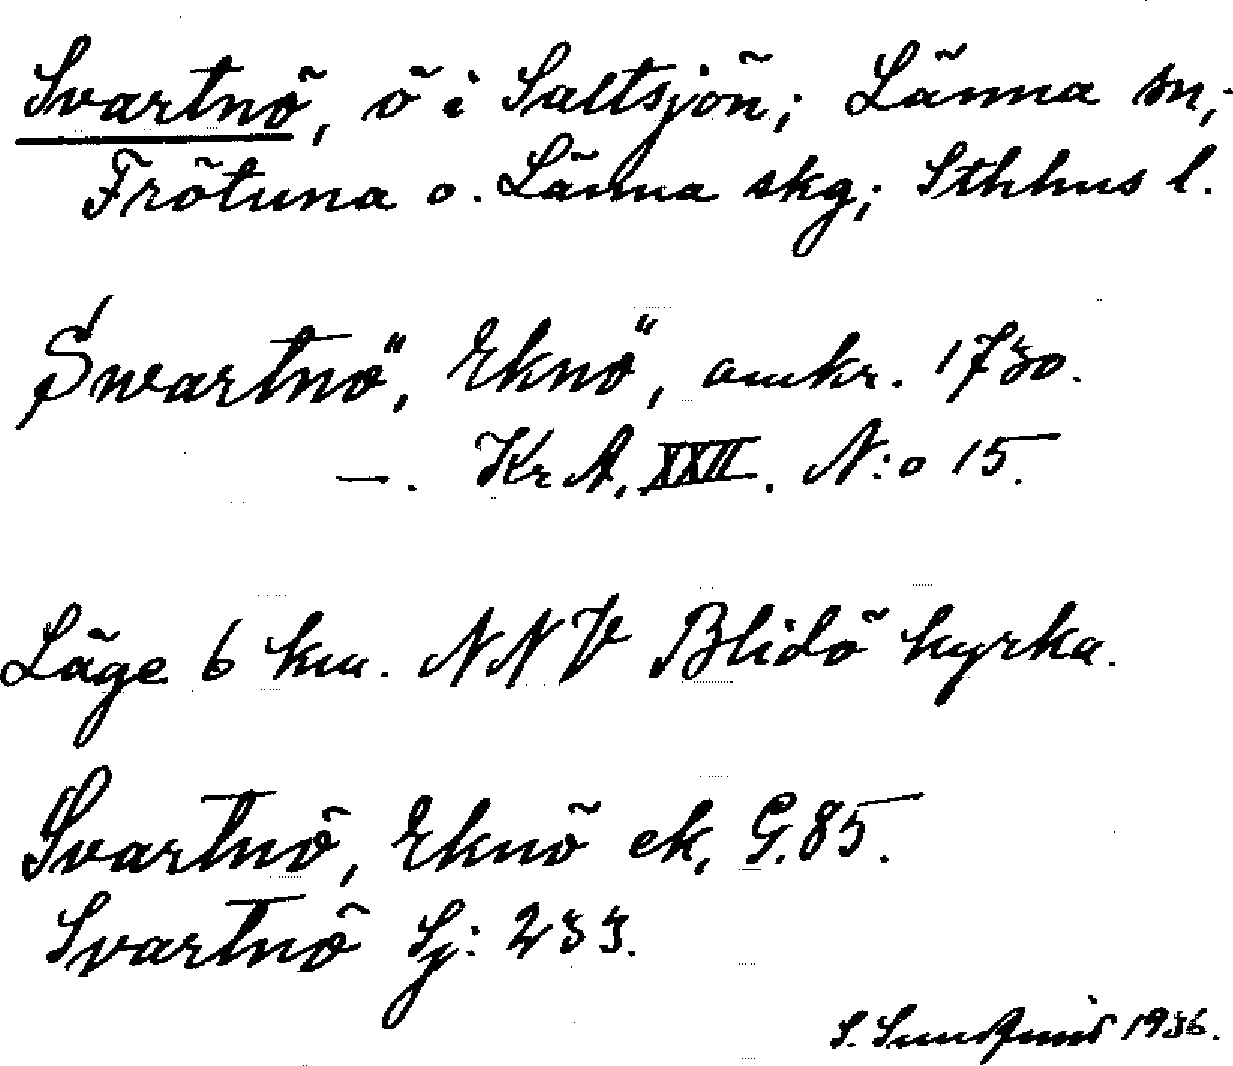 Svartnö, ö i Saltsjön; Länna sn;
Frötuna o. Länna skg; Sthlms l.
Swartnö, Eknö, omkr. 1730.
—. Kr A. XXII. N:o 15.
Läge 6 km. NNV Blidö kyrka.
Svartnö, Eknö ek, G.85.
Svartnö Sj: 233.
S. Sundqvist 1936.